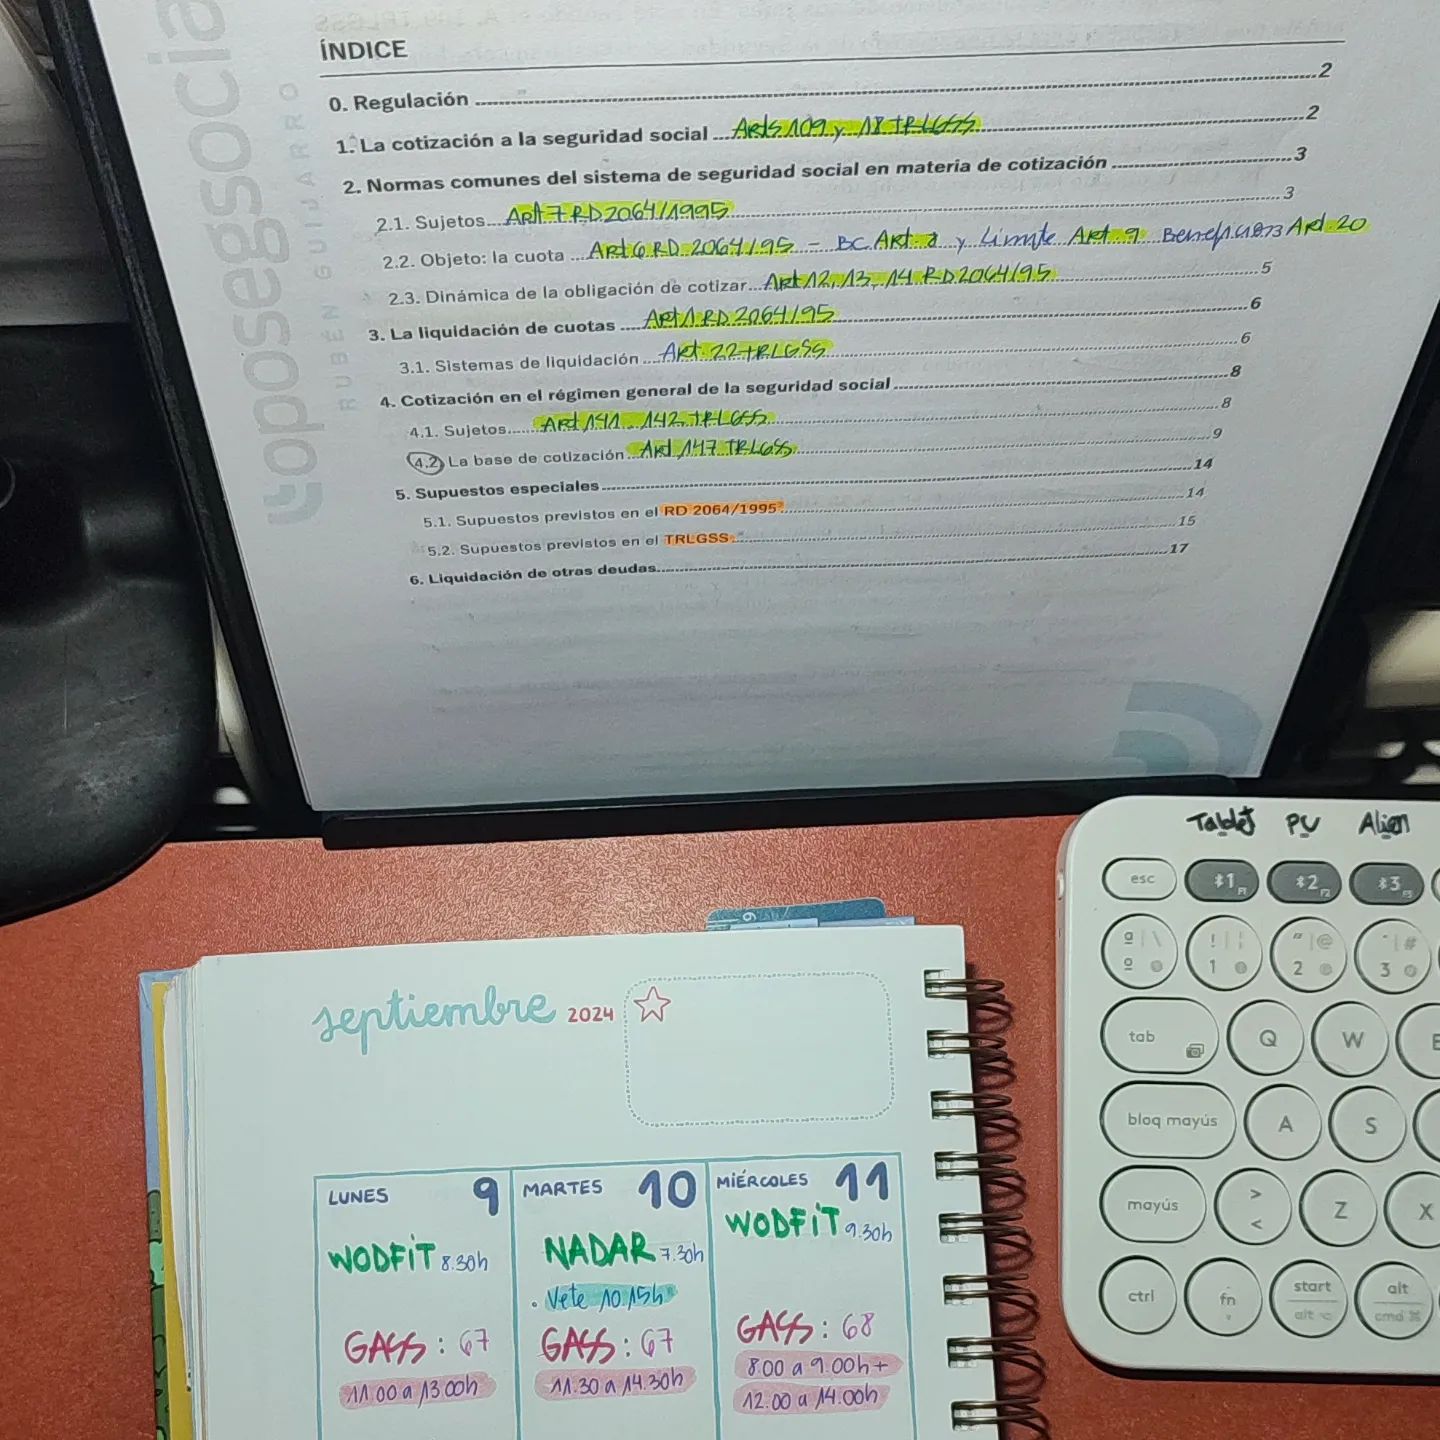 oposegsocia
RUBÉN GUIJARRO
ÍNDICE
0. Regulación ... 2
1. La cotización a la seguridad social ... Arts 109 y 18 TRLGSS ... 2
2. Normas comunes del sistema de seguridad social en materia de cotización ... 3
2.1. Sujetos... Art 7 RD 2064/1995 ... 3
2.2. Objeto: la cuota ... Art 6 RD 2064/95 - BC Art. 8 y Límite Art. 9 Art. 20
2.3. Dinámica de la obligación de cotizar... Art 12, 13, 14 RD 2064/95 ... 5
3. La liquidación de cuotas ... Art 1 RD 2064/95 ... 6
3.1. Sistemas de liquidación ... Art. 22 TRLGSS ... 6
4. Cotización en el régimen general de la seguridad social ... 8
4.1. Sujetos... Art 141 142 TRLGSS ... 8
4.2 La base de cotización ... Art 147 TRLGSS ... 9
5. Supuestos especiales ... 14
5.1. Supuestos previstos en el RD 2064/1995 ... 14
5.2. Supuestos previstos en el TRLGSS ... 15
6. Liquidación de otras deudas ... 17
Tablet PC Alien
esc 1 F1 2 F2 3 F3
º ª | \ 1 ! | ¦ 2 " | @ 3 · | #
tab Q W E
bloq mayús A S
mayús > < Z X
ctrl fn start alt alt cmd ⌘
septiembre 2024
LUNES 9
WODFIT 8.30h
GASS: 67
11.00 a 13.00h
MARTES 10
NADAR 7.30h
. Vete 10.15h
GASS: 67
11.30 a 14.30h
MIÉRCOLES 11
WODFIT 9.30h
GASS: 68
8.00 a 9.00h +
12.00 a 14.00h